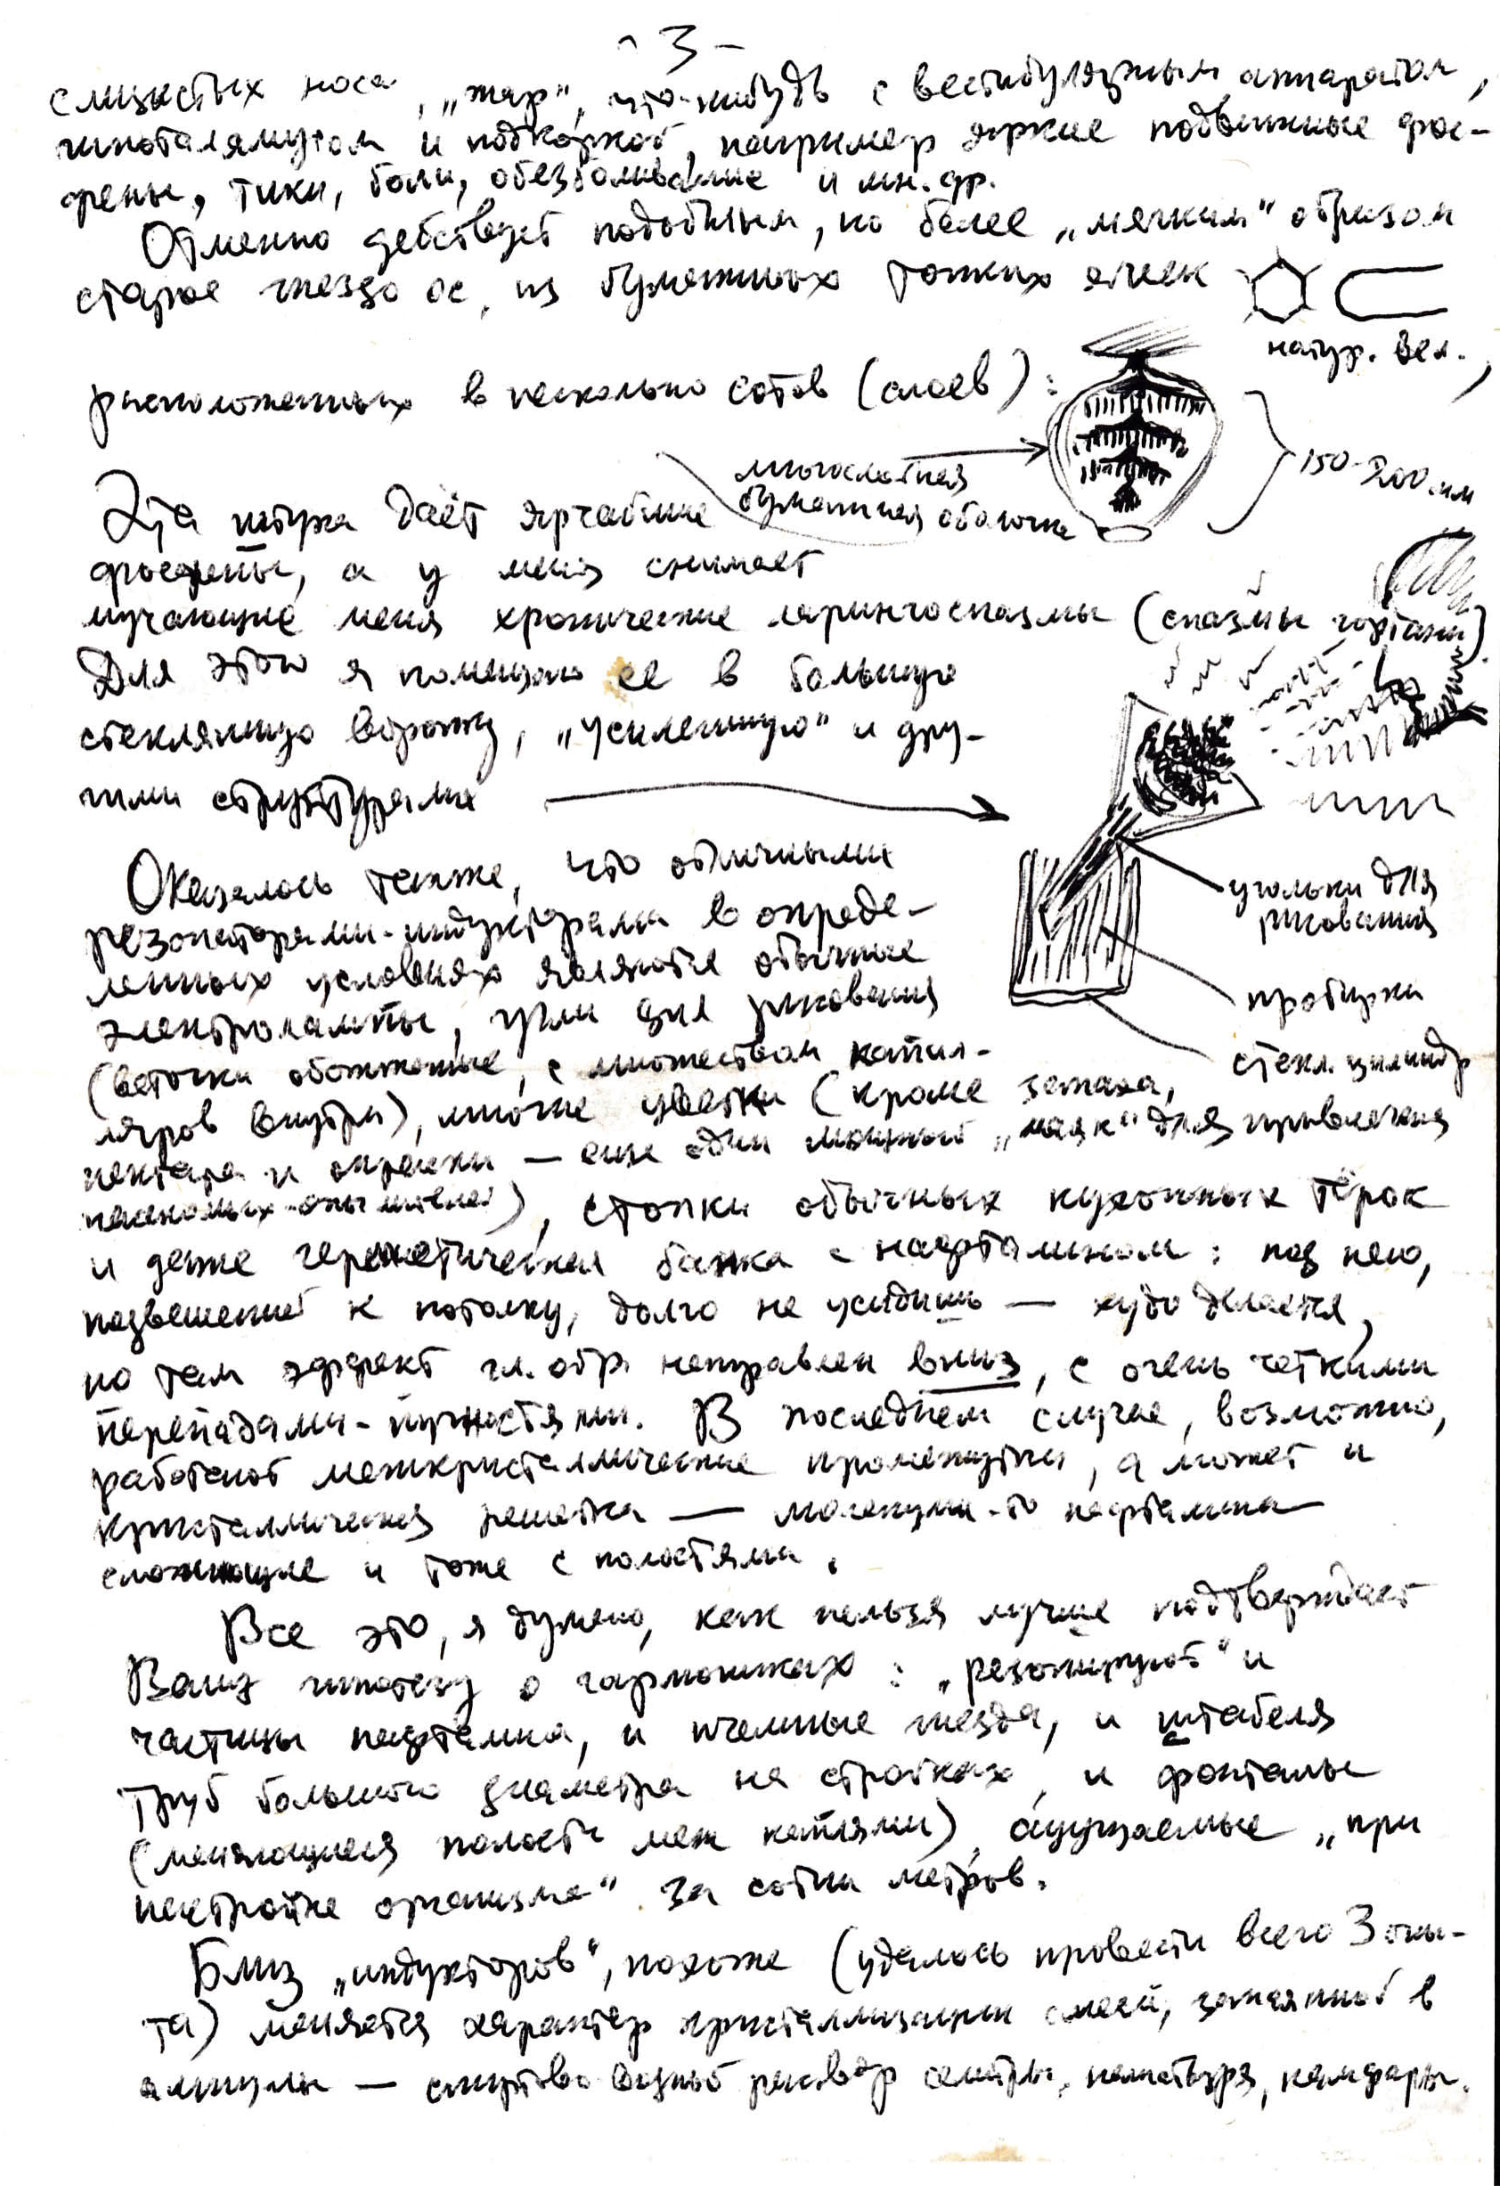 - 3 -
слизистых носа, „жар", что-нибудь с вестибулярным аппаратом,
гипоталямусом и подкоркой, например яркие подвижные фос-
фены, тики, боли, обезболивание и мн. др.
Отменно действует подобным, но более „мягким" образом
старое гнездо ос, из бумажных тонких ячеек
натур. вел.,
расположенных в несколько сотов (слоев):
многослойная
бумажная оболочка
150-200 мм
Эта штука даёт ярчайшие
фосфены, а у меня снимает
мучающие меня хронические ларингоспазмы (спазмы гортани).
Для этого я помещаю ее в большую
стеклянную воронку, „усиленную" и дру-
гими структурами
угольки для
рисования
пробирки
стекл. цилиндр
Оказалось также, что отличными
резонаторами-индукторами в опреде-
ленных условиях являются обычные
электролампы, угли для рисования
(веточки обожженные, с множеством капил-
ляров внутри), многие цветки (кроме запаха,
нектара и окраски — еще один мощный „маяк" для привлечения
насекомых-опылителей), стопки обычных кухонных тёрок
и даже герметическая банка с нафталином: под нею,
подвешенной к потолку, долго не усидишь — худо делается,
но там эффект гл. обр. направлен вниз, с очень четкими
перепадами-пучностями. В последнем случае, возможно,
работают межкристаллические промежутки, а может и
кристаллическая решетка — молекулы-то нафталина
сложнющие и тоже с полостями.
Все это, я думаю, как нельзя лучше подтверждает
Вашу гипотезу о гармониках: „резонируют" и
частицы нафталина, и пчелиные гнезда, и штабеля
труб большого диаметра на стройках, и фонтаны
(меняющиеся полости меж каплями), ощущаемые „при
настройке организма" за сотни метров.
Близ „индукторов", похоже (удалось провести всего 3 опы-
та) меняется характер кристаллизации смесей, запаянной в
ампулы — спиртово-водный раствор селитры, нашатыря, камфары.